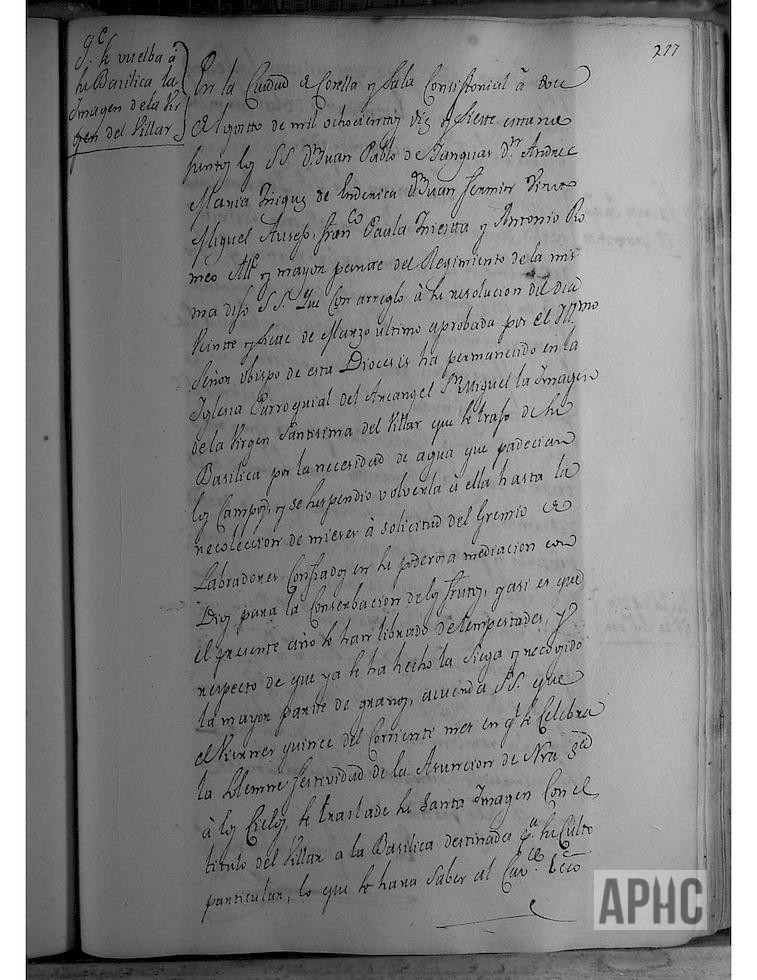 217
qᵉ se vuelba à
su Basilica la
Imagen dela Vir
gen del Villar
En la Ciudad de Corella y Sala Consistorial à doce
de Agosto de mil ochocientos diez y siete estando
juntos los SS. Dⁿ Juan Pablo de Sanguas Dⁿ Andres
Maria Iñiguez de Dⁿ Juan Fermin
Miguel Auseso, Franᶜᵒ Paula Iniesta y Antonio Ro
meo Allᵉ y mayor partte del Regimiento de la mis
ma dijo SS. Que con arreglo à la resolucion del dia
Veintte y siette de Marzo ultimo aprobada por el Ill.ᵐᵒ
Señor obispo de esta Diocesis ha permanecido en la
Iglesia Parroquial del Arcangel Sⁿ Miguel la Imagen
de la Virgen Santisima del Villar que se trajo de su
Basilica por la necesidad de agua que padecian
los Campos, y se suspendio volverla à ella hasta la
recoleccion de mieses à solicitud del Gremio de
Labradores Confiados en su poderosa mediacion con
Dios para la Conserbacion de los frutos, y asi es que
el presente año se han librado de tempestades, y
respecto de que ya se ha hecho la siega y recogido
la mayor partte de granos, acuerda SS. que
el Viernes quince del Corriente mes en qᵉ se Celebra
la solemne festividad de la Asuncion de Nra Sᵃ
à los Cielos, se traslade su Santa Imagen Con el
titulo del Villar a la Basilica destinada pᵃ su Culto
particular, lo que se hara saber al
APHC